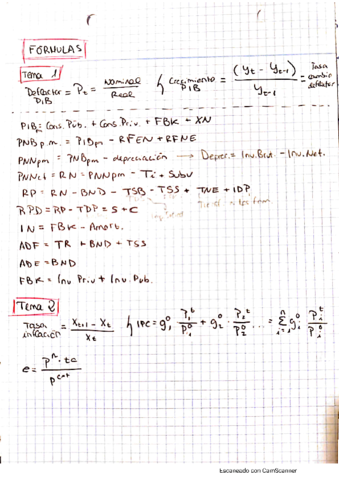 FÓRMULAS
Tema 1
Deflactor PIB = Pt = Nominal / Real
Crecimiento PIB = (yt - yt-1) / yt-1 = Tasa cambio deflactor
PIB = Cons. Púb. + Cons. Priv. + FBK + XN
PNBp.m. = PIBpm - RFEN + RFNE
PNNpm = PNBpm - depreciación → Deprec. = Inv. Brut. - Inv. Net.
PNNcf = RN = PNNpm - Ti + Subv
RP = RN - BND - TSB - TSS + TNE + IDP
RPD = RP - TDP = S + C
IN = FBK - Amort.
ADF = TR + BND + TSS
ADE = BND
FBK = Inv Priv + Inv. Púb.
Tema 2
Tasa inflación = (Xt+1 - Xt) / Xt
IPC =
Escaneado con CamScanner